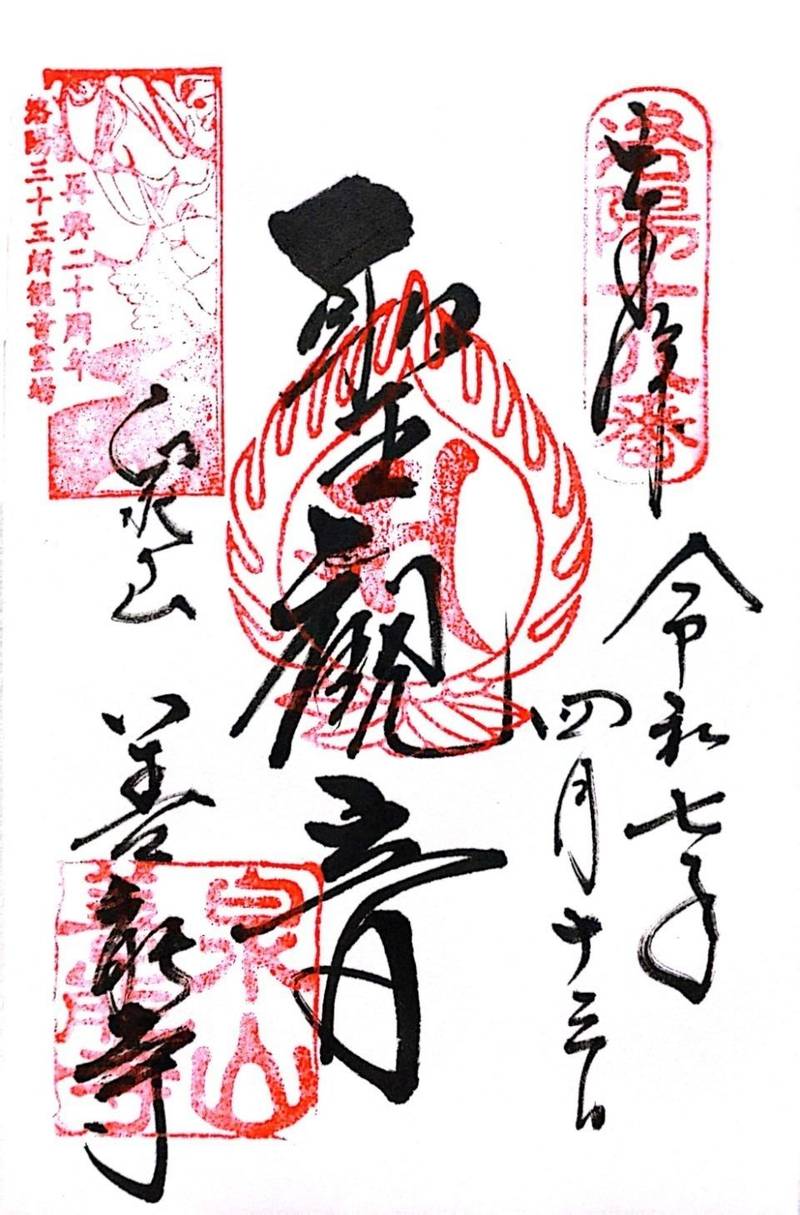 洛陽十八番
奉拝
令和七年
四月十三日
聖観音
泉山
善能寺
泉山
善能寺
再興二十周年
洛陽三十三所観音霊場